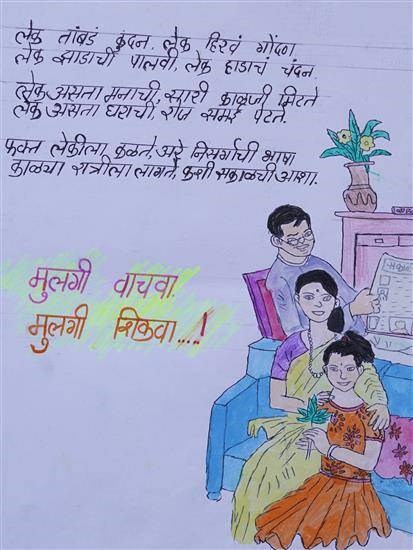 लेक तांबडं कुंदन, लेक हिरवं गोंदण
लेक झाडाची पालवी, लेक हाडाचं चंदन.
लेक असता मनाची, सारी काळजी मिटते
लेक असता घराची, रोज समई पेटते.
फक्त लेकीला, कळते, अरे निसर्गाची भाषा
काळ्या रात्रीला लागते, कशी सकाळची आशा.
मुलगी वाचवा
मुलगी शिकवा....!